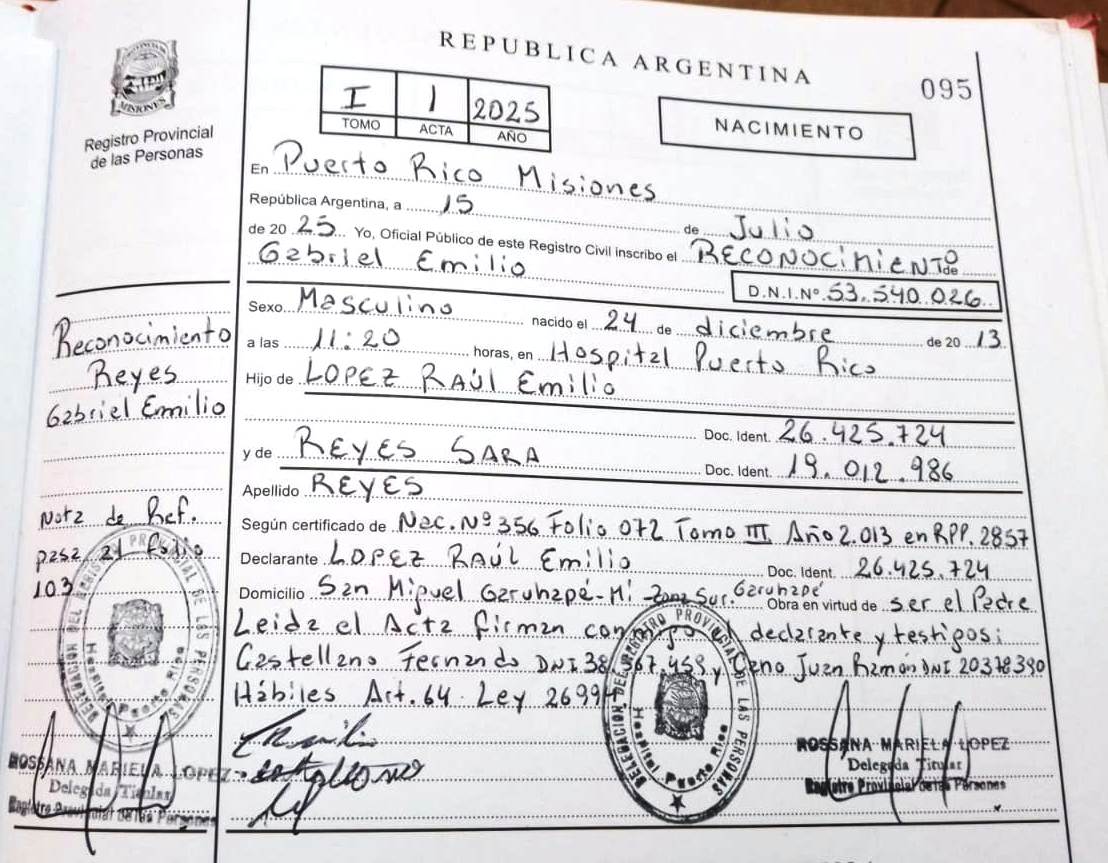 REPUBLICA ARGENTINA
095
PROVINCIA DE
MISIONES
Registro Provincial
de las Personas
I 1 2025
TOMO ACTA AÑO
NACIMIENTO
En Puerto Rico Misiones
República Argentina, a 15 de Julio
de 20 25 Yo, Oficial Público de este Registro Civil inscribo el RECONOCIMIENTO de
Gabriel Emilio
D.N.I.Nº 53.540.026
Sexo Masculino nacido el 24 de diciembre de 20 13
a las 11:20 horas, en Hospital Puerto Rico
Hijo de LOPEZ RAÚL Emilio
Doc. Ident. 26.425.724
y de REYES SARA Doc. Ident. 19.012.986
Apellido REYES
Según certificado de Nac. Nº 356 Folio 072 Tomo III Año 2.013 en RPP. 2857
Declarante LOPEZ RAÚL Emilio Doc. Ident. 26.425.724
Domicilio San Miguel Garuhapé-Mi-Zona Sur. Garuhapé Obra en virtud de ser el Padre
Leida el Acta firman declarante y testigos:
Castellano Fernando DNI 38. Juan Ramón DNI 20378390
Hábiles Art. 64 Ley 26994
Reconocimiento
Reyes
Gabriel Emilio
Nota de Ref.
pasa al Folio
103
DELEGACION DEL REGISTRO PROVINCIAL DE LAS PERSONAS
Hospital Puerto Rico
ROSSANA MARIELA LOPEZ
Delegada Titular
Registro Provincial de las Personas
DELEGACION DEL REGISTRO PROVINCIAL DE LAS PERSONAS
Hospital Puerto Rico
ROSSANA MARIELA LOPEZ
Delegada Titular
Registro Provincial de las Personas